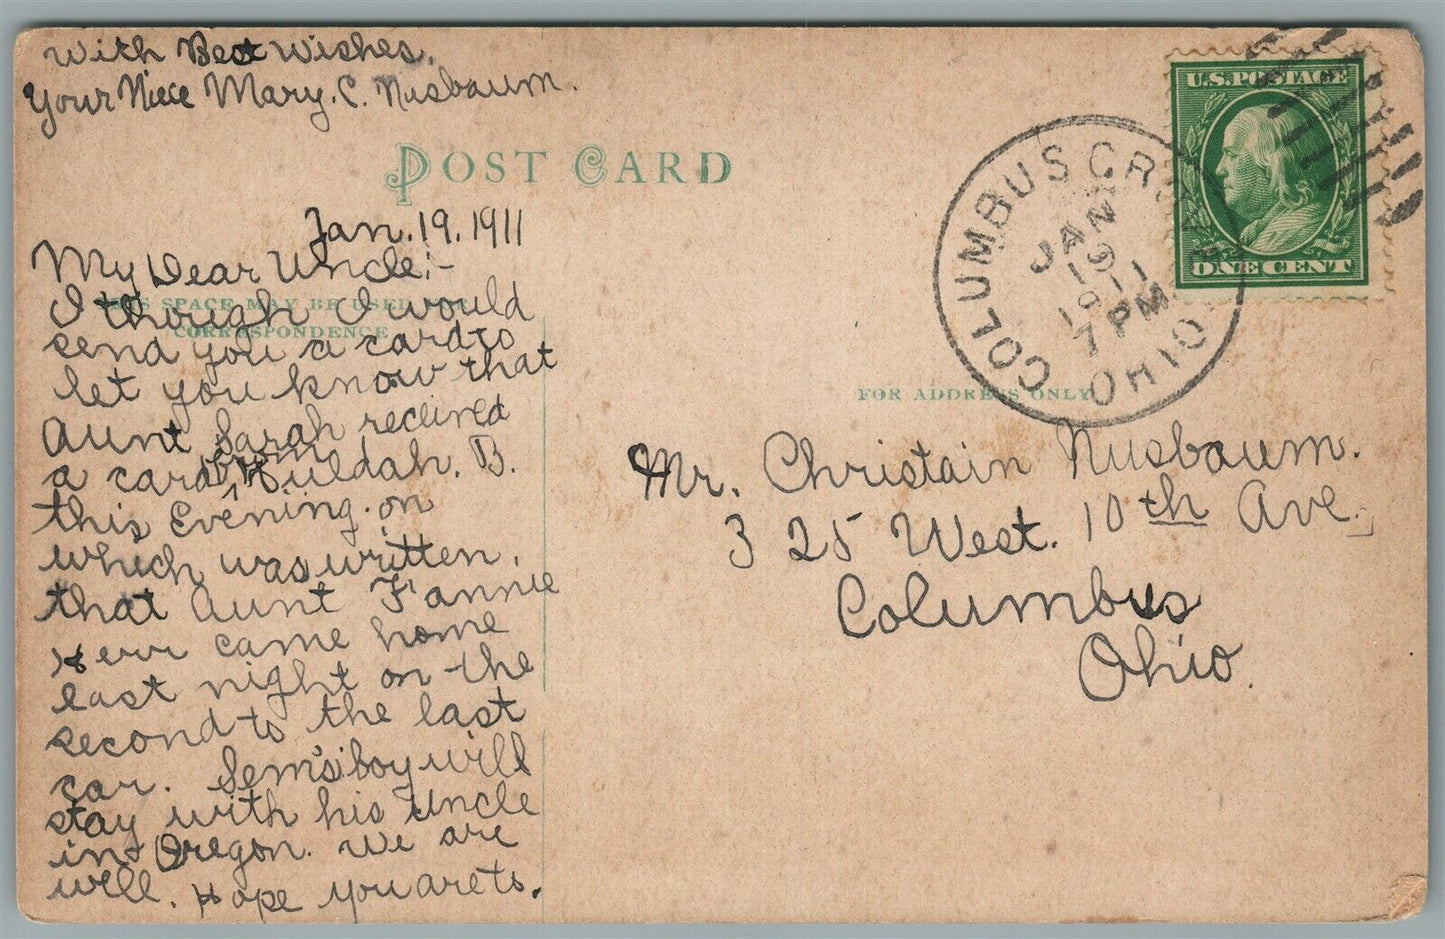 With Best Wishes.
Your Niece Mary. C. Nusbaum.
POST CARD
Jan. 19. 1911
My Dear Uncle:-
THIS SPACE MAY BE USED FOR
CORRESPONDENCE
I though I would
send you a card to
let you know that
Aunt Sarah recieved
a card from Huldah. B.
this Evening. on
which was written.
that Aunt Fannie
Herr came home
last night on the
second to the last
car. Sem's boy will
stay with his Uncle
in Oregon. We are
well. Hope you are to.
U.S. POSTAGE
ONE CENT
COLUMBUS GROVE
JAN
19
1911
7 PM
OHIO
FOR ADDRESS ONLY
Mr. Christain Nusbaum.
325 West. 10th Ave.
Columbus
Ohio.